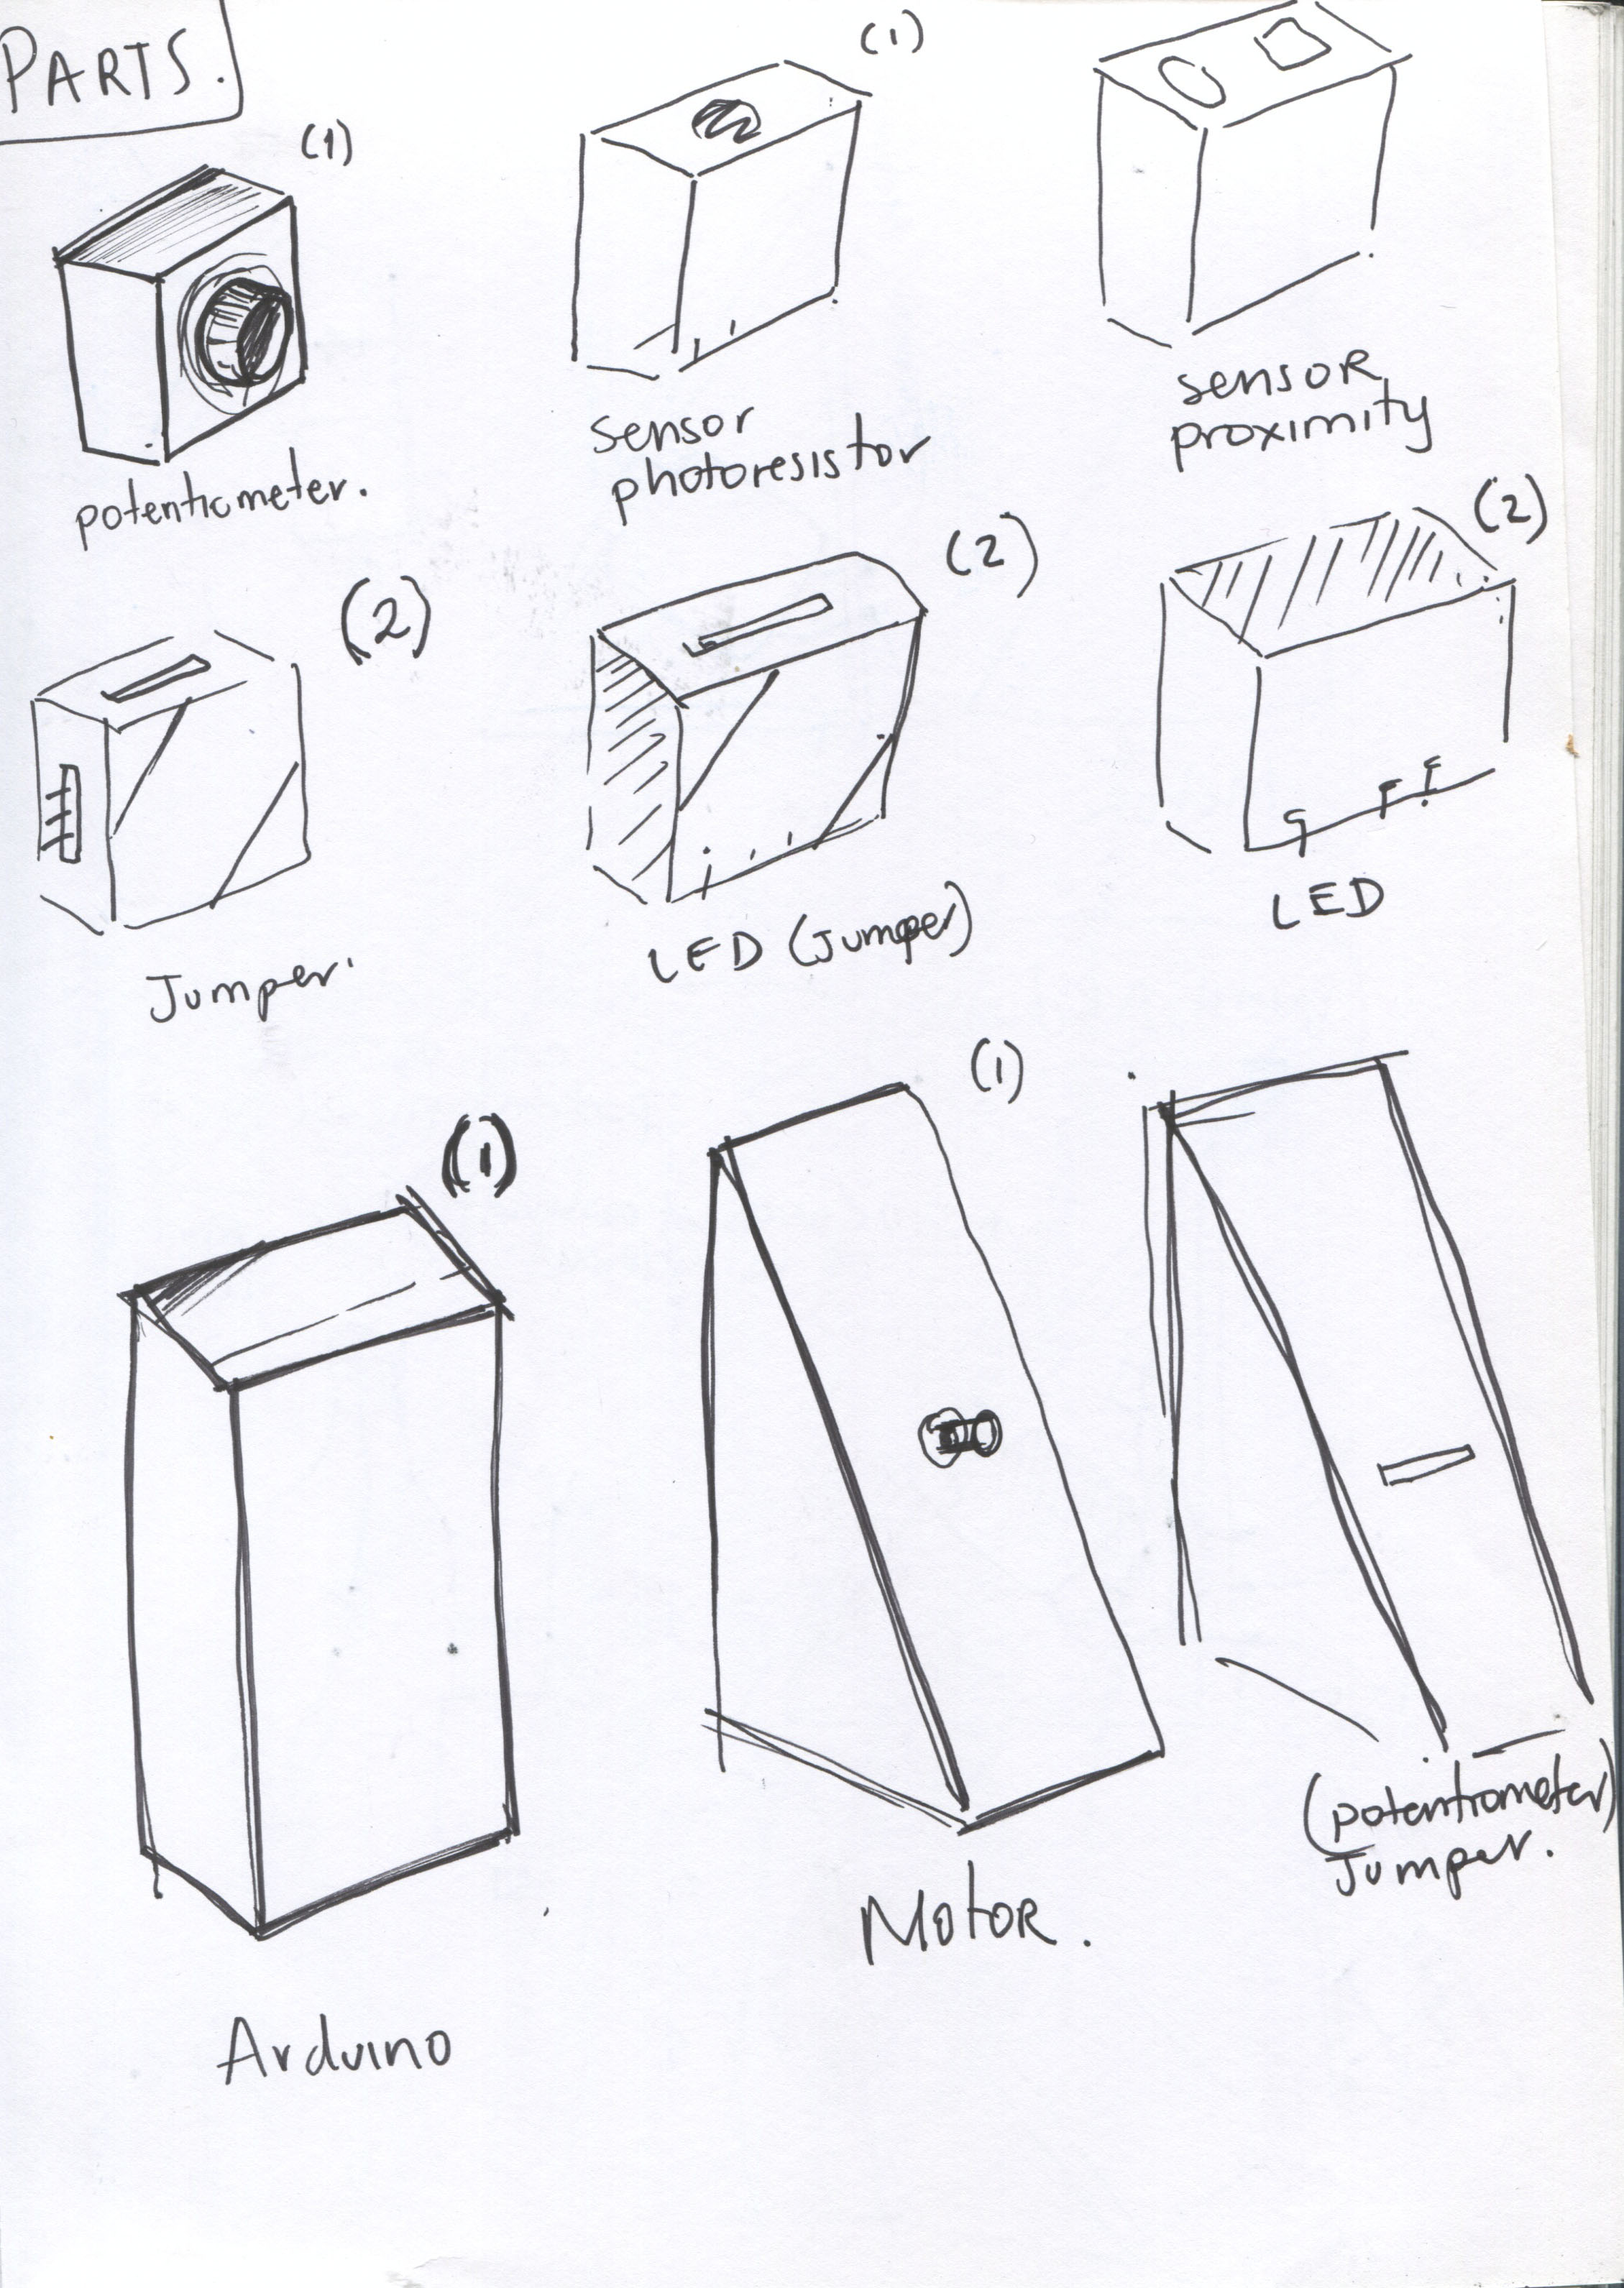 PARTS.
(1)
potentiometer.
(1)
sensor
photoresistor
sensor
proximity
(2)
Jumper.
(2)
LED (Jumper)
(2)
LED
(1)
Arduino
(1)
Motor.
(potentiometer)
Jumper.